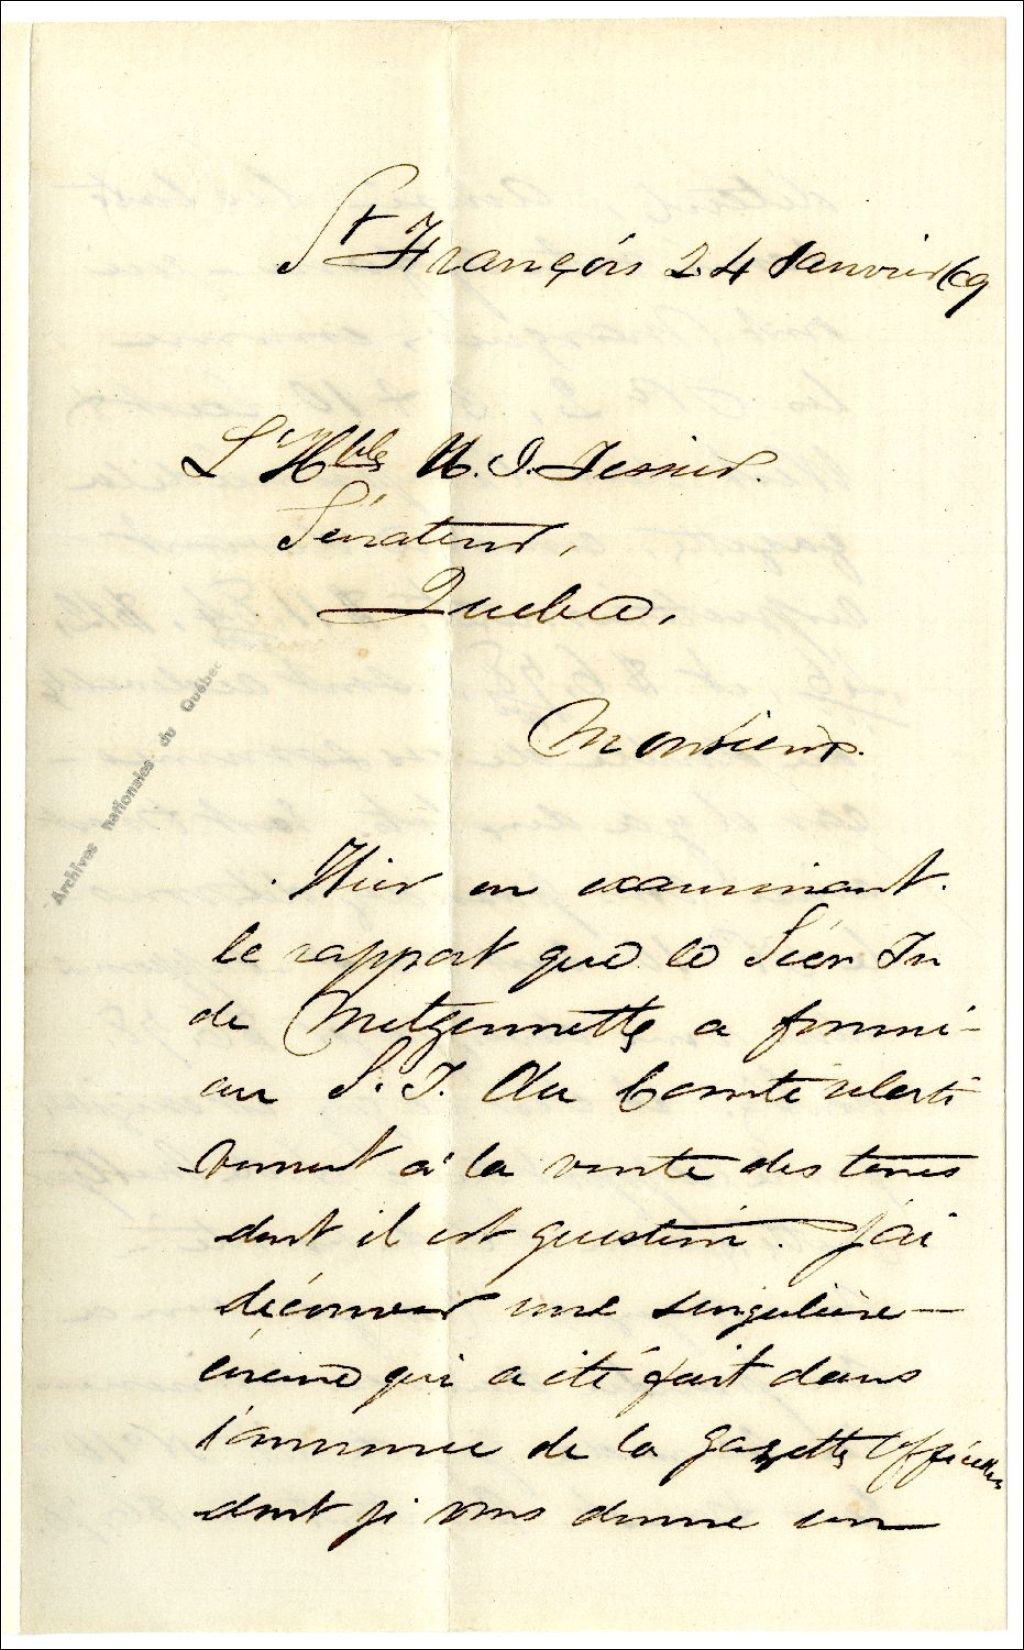 St François 24 Janvier 69
L'Hble U. J. Tessier.
Sénateur,
Québec,
Monsieur.
Archives nationales du Québec
Hier en examinant.
le rapport que le Sieur
de Metzermette a fourni-
au S. T. du Comté relati
vement à la vente des terres
dont il est question. J'ai
découver une singulière
erreur qui a été fait dans
l'annonce de la gazette officielle
dont je vous donne un